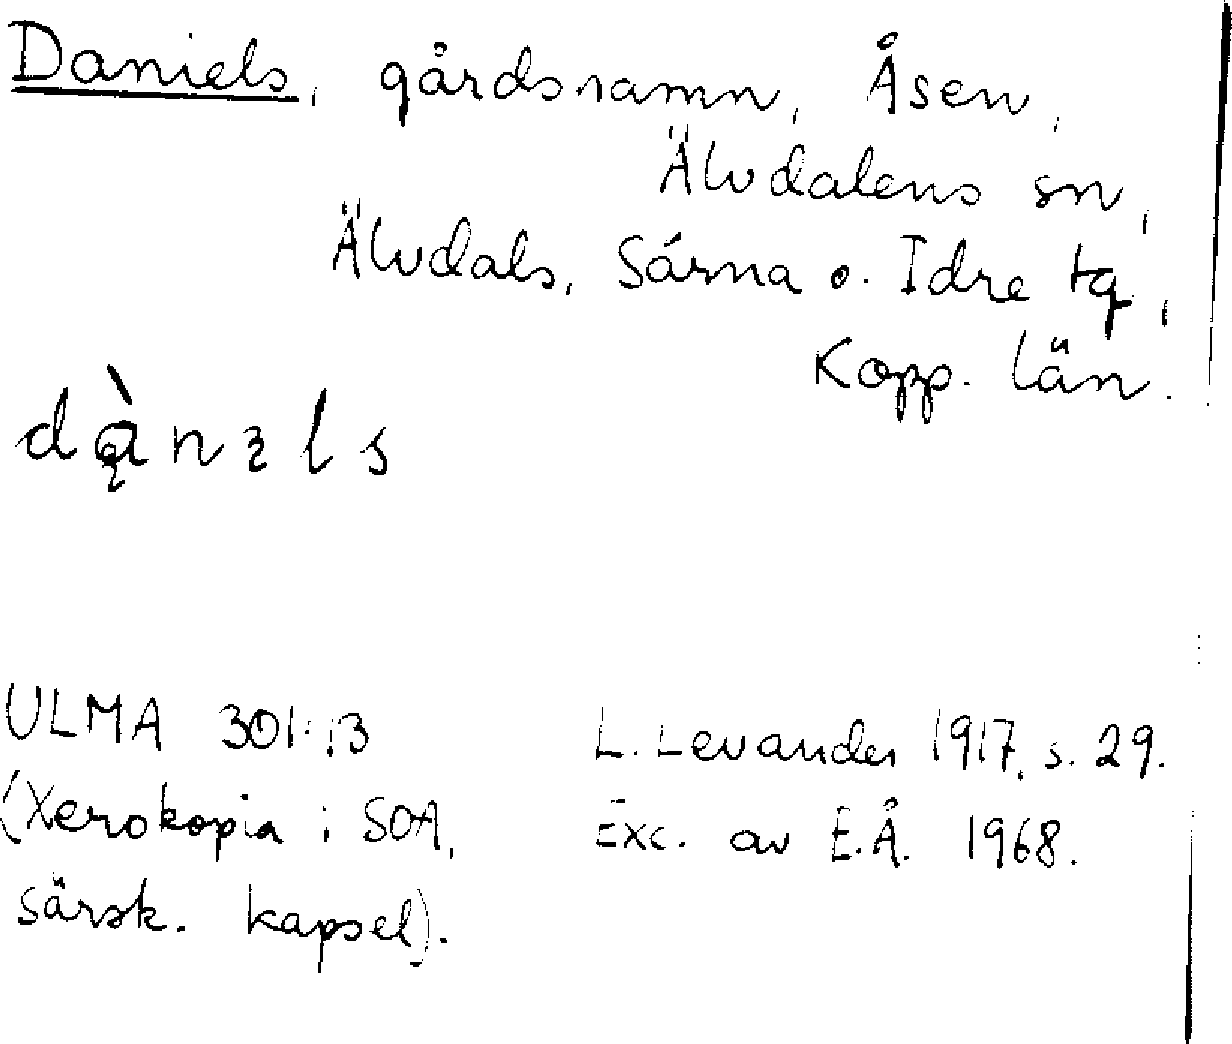 Daniels, gårdsnamn, Åsen,
Älvdalens sn,
Älvdals, Särna o. Idre tg,
Kopp. län.
dą̀nɜls
ULMA 301:13
L. Levander 1917, s. 29.
(Xerokopia i SOA,
Exc. av E.Å. 1968.
särsk. kapsel).